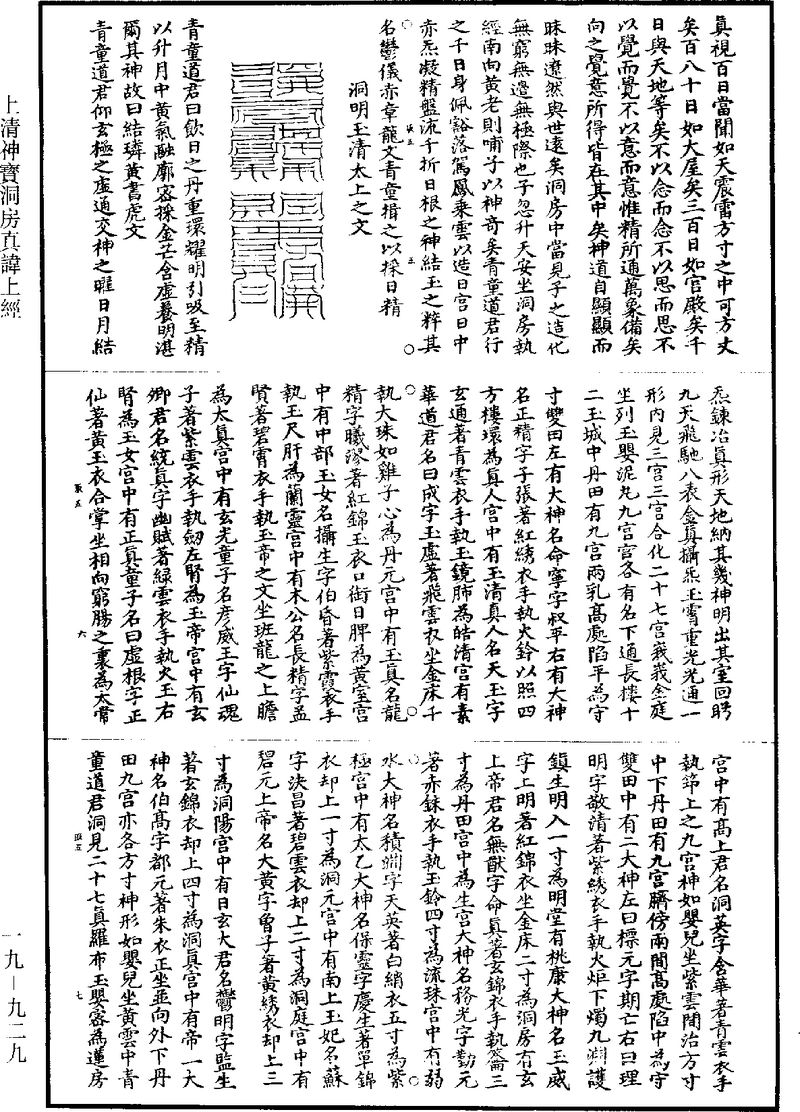 上清神寶洞房真諱上經
真視百日當聞如天震雷方寸之中可方丈
矣百八十日如大屋矣三百日如官殿矣千
日與天地等矣不以念而念不以思而思不
以覺而覺不以意而意惟精所通萬象備矣
向之覺意所得皆在其中矣神道自顯顯而
昧昧遼然與世遠矣洞房中當見子之造化
無窮無邊無極際也子忽升天安坐洞房執
經南向黃老則哺子以神奇矣青童道君行
之千日身佩豁落駕鳳乘雲以造日宮日中
赤炁凝精盤流千折日根之神結玉之粹其
名鬱儀赤章龍文青童揖之以採日精
洞明玉清太上之文
青童道君曰飲日之丹重環耀明引吸至精
以升月中黃氣融廓容採金芒含虛養明湛
爾其神故曰結璘黃書虎文
青童道君仰玄極之虛通交神之曜日月結
炁鍊冶真形天地納其幾神明出其室回眄
九天飛馳八表金真攝炁玉霄重光光通一
形內見三宮三宮合化二十七宮峩峩金庭
坐列玉嬰泥丸九宮官各有名下通長樓十
二玉城中丹田有九宮兩乳高處陷平為守
寸雙田左有大神名命寧字叔平右有大神
名正精字子張著紅綉衣手執火鈴以照四
方樓環為真人宮中有玉清真人名天玉字
玄通著青雲衣手執玉鏡肺為皓清宮有素
華道君名曰成字玉虛著飛雲衣坐金床千
執大珠如雞子心為丹元宮中有玉真名龍
精字曦漻著紅錦玉衣口銜日脾為黃室宮
中有中部玉女名攝生字伯昏著紫霞衣手
執玉尺肝為蘭靈宮中有木公名長精字孟
賢著碧霄衣手執玉帝之文坐班龍之上膽
為太真宮中有玄光童子名彥威王字仙魂
子著紫雲衣手執劒左腎為玉帝宮中有玄
卿君名統真字幽賦著綠雲衣手執火玉右
腎為玉女宮中有正真童子名曰虛根字正
仙著黃玉衣合掌坐相向窮腸之裏為太常
宮中有高上君名洞英字含華著青雲衣手
執節上之九宮神如嬰兒坐紫雲閣治方寸
中下丹田有九宮臍傍兩間高處陷中為守
雙田中有二大神左曰標元字期亡右曰理
明字敬清著紫綉衣手執火炬下燭九淵護
鎮生明入一寸為明堂有桃康大神名玉威
字上明著紅錦衣坐金床二寸為洞房有玄
上帝君名無猷字命真著玄錦衣手執籥三
寸為丹田宮中為生宮大神名務光字勤元
著赤銖衣手執玉鈴四寸為流珠宮中有弱
水大神名積淵字天英著白綃衣五寸為紫
極宮中有太乙大神名保靈字慶生著單錦
衣却上一寸為洞元宮中有南上玉妃名蘇
字決昌著碧雲衣却上二寸為洞庭宮中有
碧元上帝名大黃字曾子著黃綉衣却上三
寸為洞陽宮中有日玄大君名鬱明字監生
著玄錦衣却上四寸為洞真宮中有帝一大
神名伯高字都元著朱衣正坐並向外下丹
田九宮亦各方寸神形如嬰兒坐黃雲中青
童道君洞見二十七真羅布玉嬰容為蓮房
一九－九二九